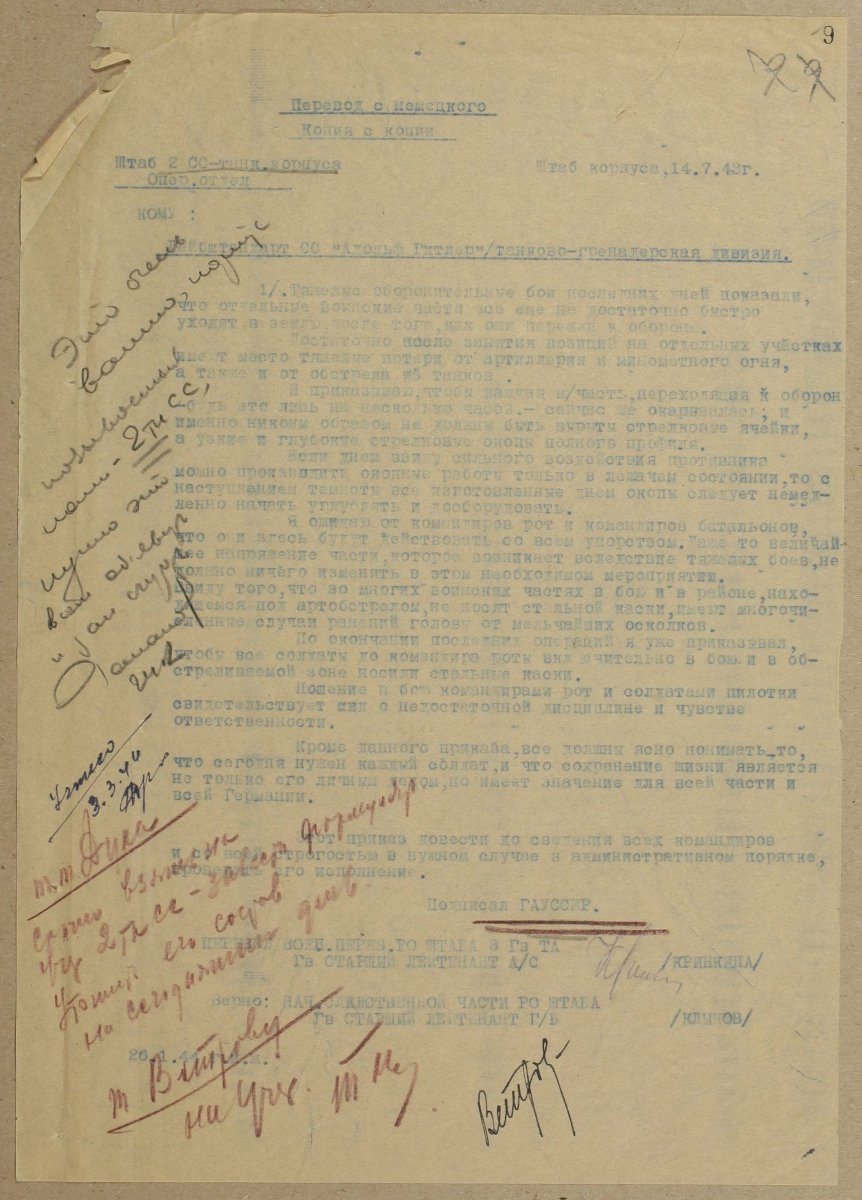 9
Перевод с немецкого
Копия с копии
Штаб 2 СС-танк.корпуса
Штаб корпуса,14.7.43г.
Опер.отдел
КОМУ :
Лейбштандарт СС "Адольф Гитлер"/танково-гренадерская дивизия.
1/.Тяжелые оборонительные бои последних дней показали,
что отдельные воинские части все еще не достаточно быстро
уходят в землю,после того,как они перешли к обороне.
Достаточно после занятия позиций на отдельных участках
имеют место тяжелые потери от артиллерии и минометного огня,
а также и от обстрела из танков .
Я приказываю,чтобы каждая в/часть,переходящая к оборон
-будь это лишь на несколько часов.- сейчас же окапывалась; и
именно никоим образом не должны быть вырыты стрелковые ячейки,
а узкие и глубокие стрелковые окопы полного профиля.
Если днем ввиду сильного воздействия противника
можно производить окопные работы только в лежачем состоянии,то с
наступлением темноты все изготовленные днем окопы следует немед-
ленно начать углублять и дооборудовать.
Я ожидаю от командиров рот и командиров батальонов,
что они здесь будут действовать со всем упорством.Даже то величай-
шее напряжение части,которое возникает вследствие тяжелых боев,не
должно ничего изменить в этом необходимом мероприятии.
Ввиду того,что во многих воинских частях в бою и в районе,нахо-
дящемся под артобстрелом,не носят стальной каски,имеют многочи-
сленные случаи ранений головы от мельчайших осколков.
По окончании последних операций я уже приказывал,
чтобы все солдаты до командира роты включительно в бою и в об-
стреливаемой зоне носили стальные каски.
Ношение в бою командирами рот и солдатами пилотки
свидетельствует о недостаточной дисциплине и чувстве
ответственности.
Кроме данного приказа,все должны ясно понимать,то,
что сегодня нужен каждый солдат,и что сохранение жизни является
не только его личным делом,но имеет значение для всей части и
всей Германии.
Этот приказ довести до сведения всех командиров
и со всей строгостью в нужном случае в административном порядке,
проверить его исполнение.
Подписал ГАУССЕР.
ПЕРЕВЕЛ ВОЕН.ПЕРЕВ.РО ШТАБА 3 Гв ТА
Гв СТАРШИЙ ЛЕЙТЕНАНТ А/С /КРИНКИНА/
Верно: НАЧ.СЛЕДСТВЕННОЙ ЧАСТИ РО ШТАБА
Гв СТАРШИЙ ЛЕЙТЕНАНТ Г/Б /КЛЫЧОВ/
26.1.44
Это очень
важно,
2 тк СС,
нужно это
Учтено
3.3.44
срочно взять на
уч 2 тк СС -
его состав
на сегодняшний день
т Ветрову
на учет.
Ветров